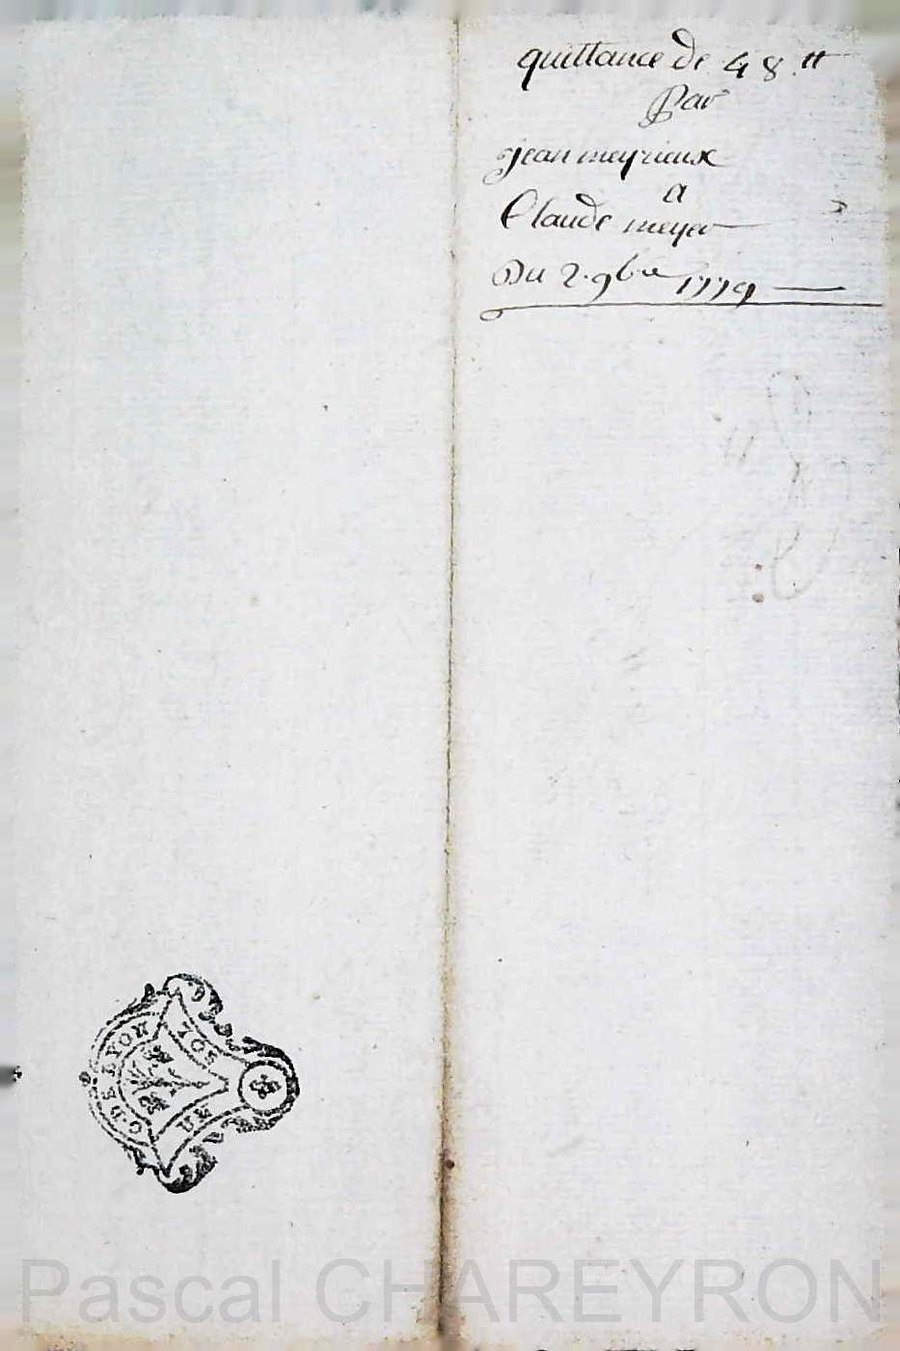 quittance de 48 ₶
Par
jean meyrieux
a
Claude meyer
Du 2. 9bre 1779
G. DE LYON
UN
SOL
Pascal CHAREYRON